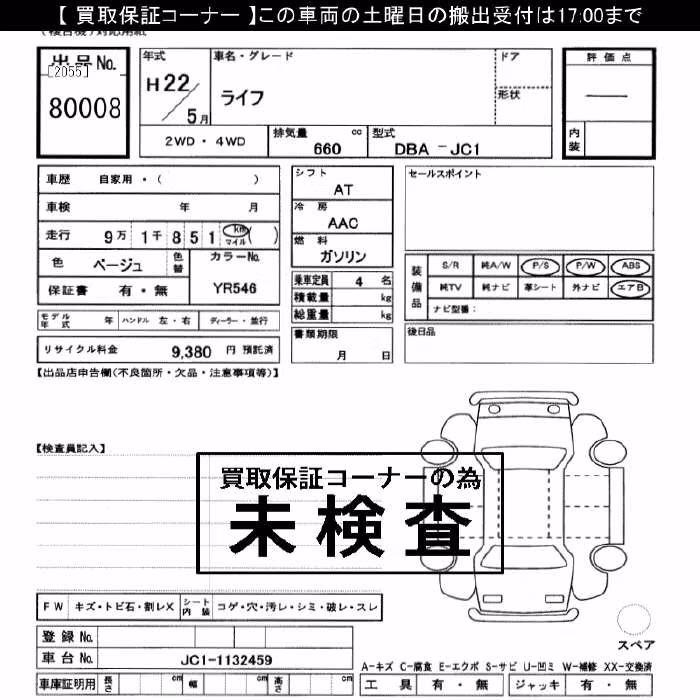 【 買取保証コーナー 】この車両の土曜日の搬出受付は17:00まで
出品No.
[2055]
80008
年式
H 22 / 5月
車名・グレード
ライフ
ドア
形状
評価点
内装
2WD ・ 4WD
排気量 cc
660
型式
DBA － JC1
車歴 自家用 ・ ( )
車検 年 月
走行 9万 1千 8 5 1 km マイル ( )
色 ベージュ 色替
カラーNo.
YR546
保証書 有 ・ 無
モデル年式 年 ハンドル 左 ・ 右 ディーラー ・ 並行
リサイクル料金 9,380 円 預託済
シフト
AT
冷房
AAC
燃料
ガソリン
乗車定員 4 名
積載量 kg
総重量 kg
書類期限
月 日
セールスポイント
装備品
S/R 純A/W P/S P/W ABS
純TV 純ナビ 革シート 外ナビ エアB
ナビ型番：
後日品
【出品店申告欄(不良箇所・欠品・注意事項等)】
【検査員記入】
買取保証コーナーの為
未検査
FW キズ・トビ石・割レX シート内装 コゲ・穴・汚レ・シミ・破レ・スレ
登録 No.
車台 No. JC1-1132459
車庫証明用 長さ cm 幅 cm 高さ cm
スペア
A-キズ C-腐食 E-エクボ S-サビ U-凹ミ W-補修 XX-交換済
工具 有 ・ 無 ジャッキ 有 ・ 無